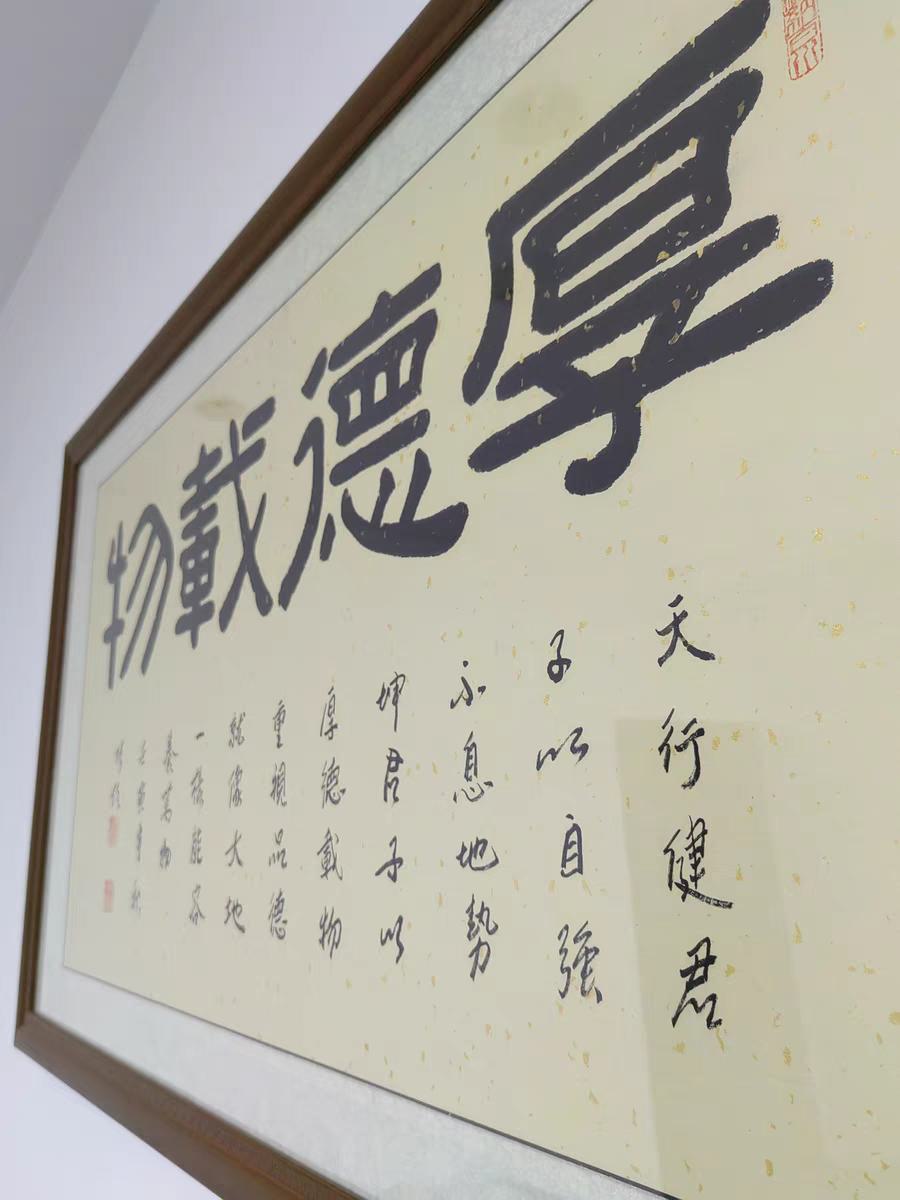 厚德載物
天行健君
子以自強
不息地勢
坤君子以
厚德載物
重視品德
就像大地
一樣能容
養萬物
壬寅季秋